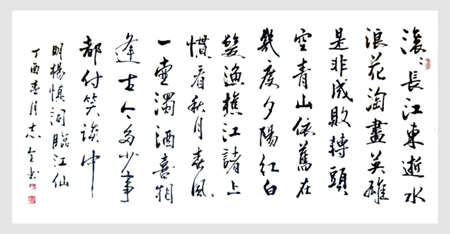 滚〻長江東逝水
浪花淘盡英雄
是非成敗轉頭
空青山依舊在
幾度夕陽紅白
髮漁樵江渚上
惯看秋月春風
一壺濁酒喜相
逢古今多少事
都付笑談中
明楊慎词臨江仙
丁酉春月志书